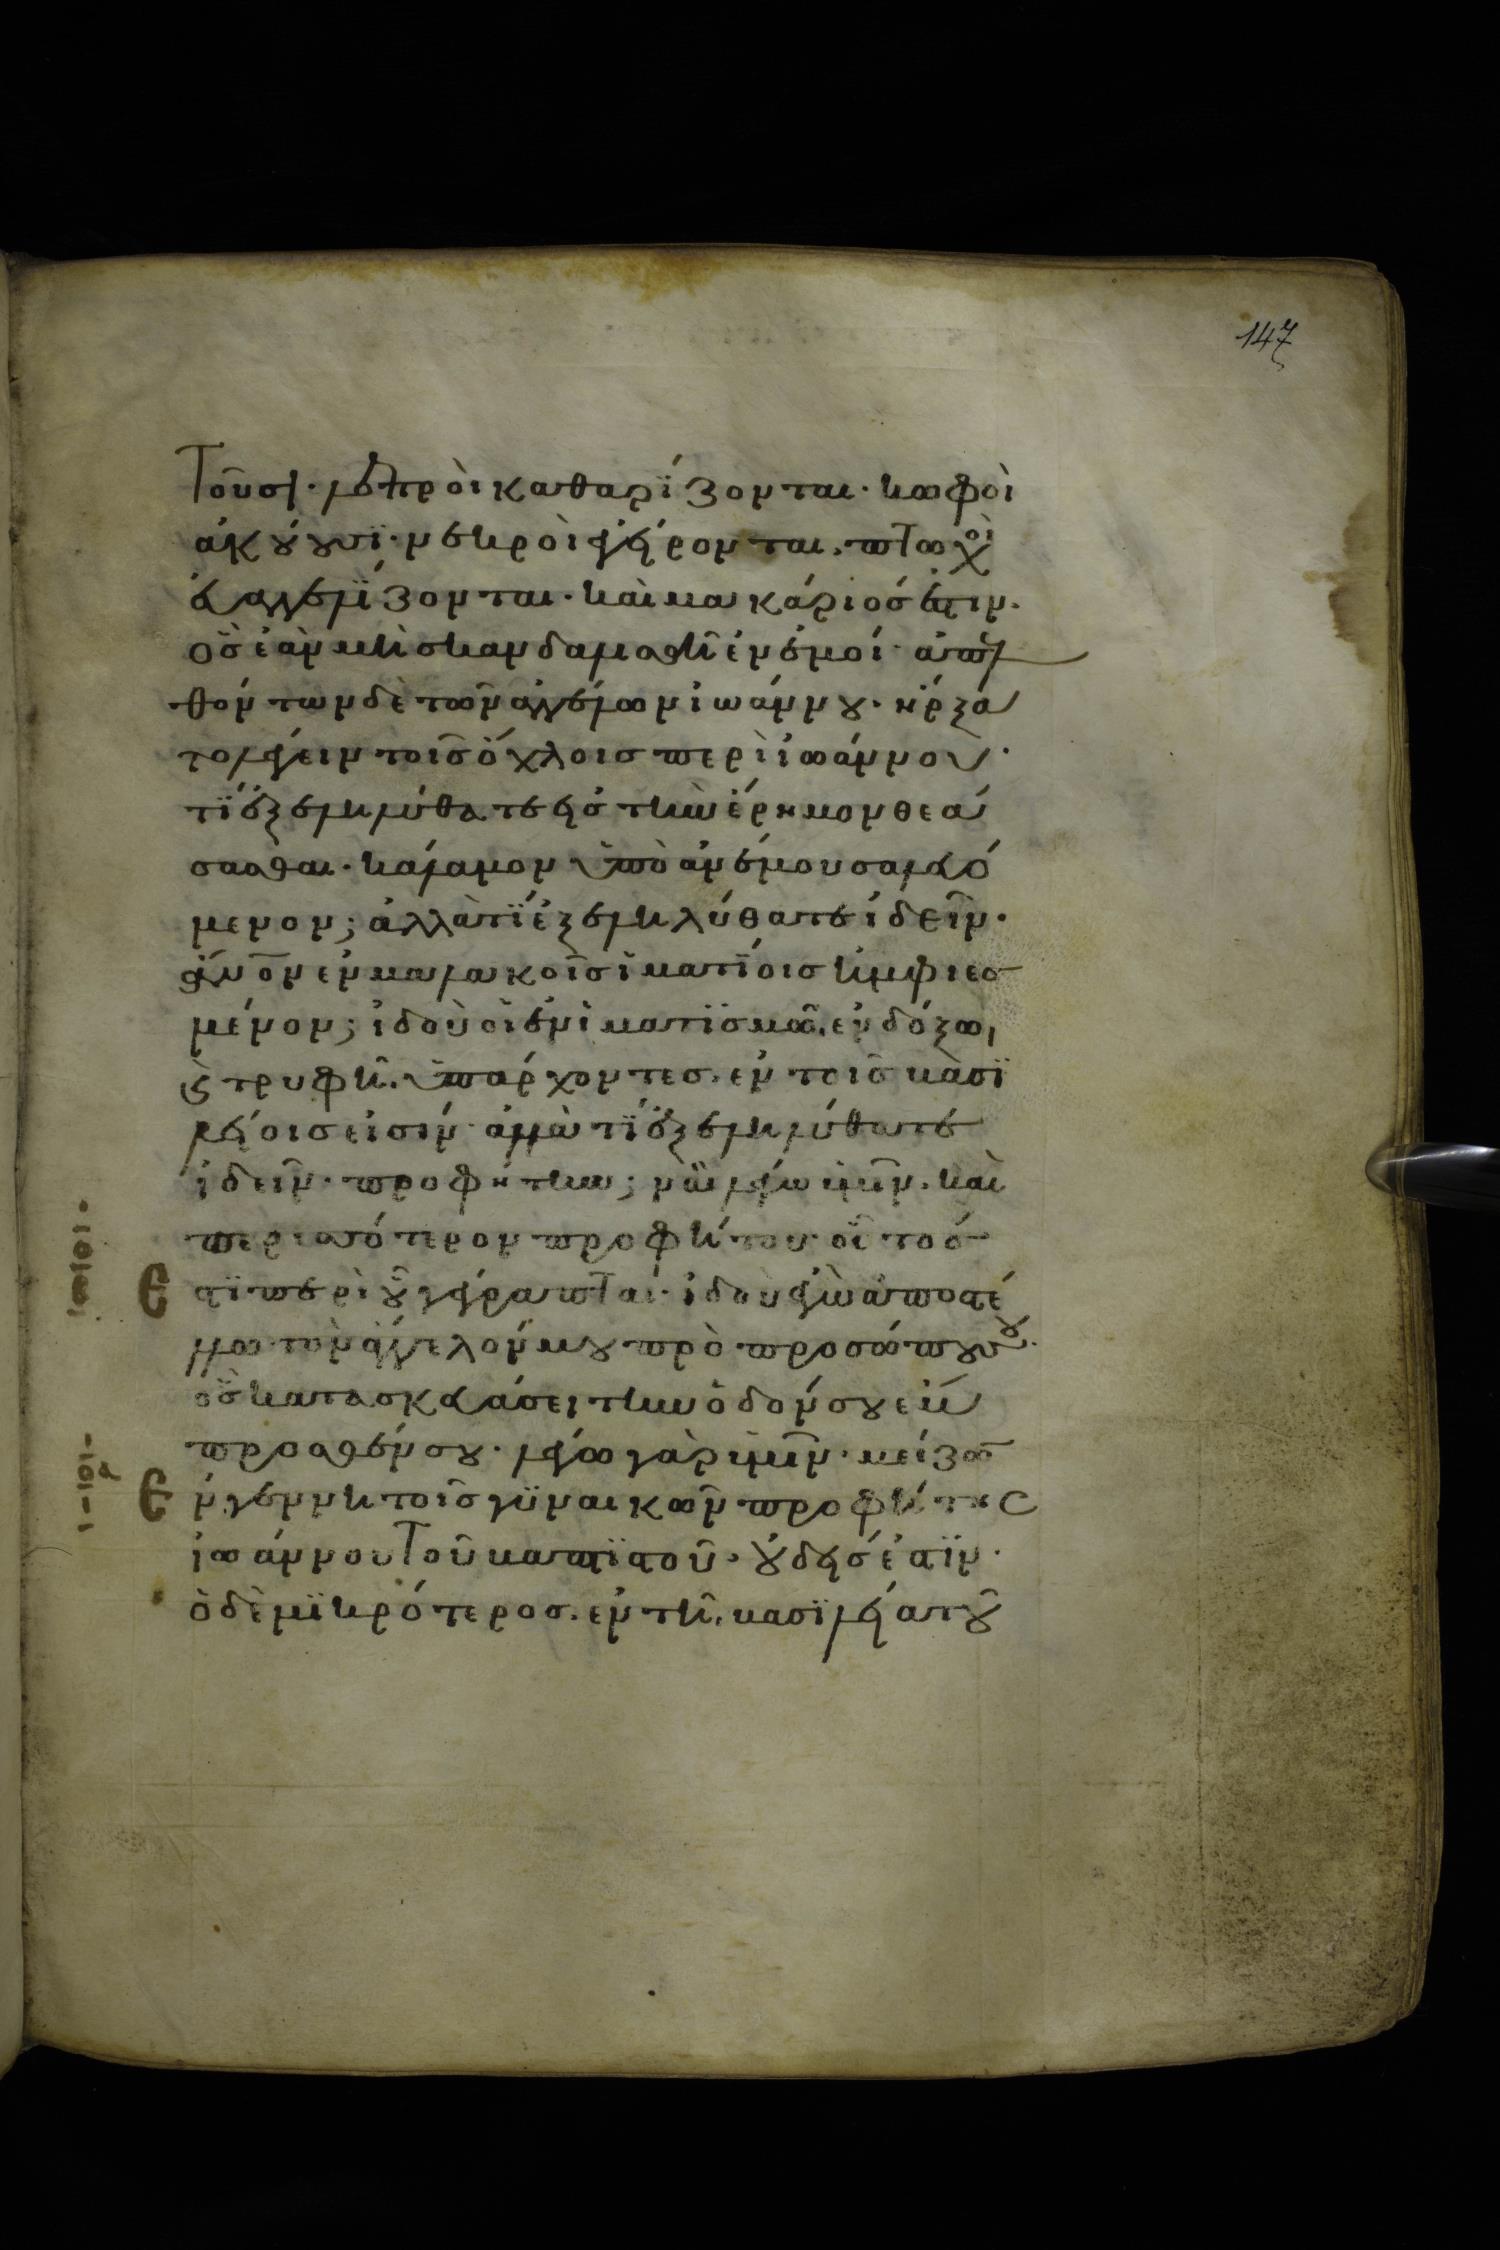 147
τοῦσι· λεπροὶ καθαρίζονται· κωφοὶ
ἀκούουσι· νεκροὶ ἐγείρονται· πτωχοὶ
εὐαγγελίζονται· καὶ μακάριός ἐστιν·
ὃς ἐὰν μὴ σκανδαλισθῇ ἐν ἐμοί· ἀπελ
θόντων δὲ τῶν ἀγγέλων ἰωάννου· ἤρξα
το λέγειν τοῖς ὄχλοις περὶ ἰωάννου·
τί ἐξεληλύθατε εἰς τὴν ἔρημον θεά
σασθαι· κάλαμον ὑπὸ ἀνέμου σαλευό
μενον; ἀλλὰ τί ἐξεληλύθατε ἰδεῖν·
ἄνον ἐν μαλακοῖς ἱματίοις ἠμφιεσ
μένον; ἰδοὺ οἱ ἐν ἱματισμῶ ἐνδόξω,
ϛ τρυφῆ ὑπάρχοντες· ἐν τοῖς βασι
λείοις εἰσίν· ἀλλὰ τί ἐξεληλύθατε
ἰδεῖν· προφήτην; ναὶ λέγω ὑμῖν· καὶ
περισσότερον προφήτου· οὗτός
ἐ
στι περὶ οὗ γέγραπται· ἰδοὺ ἐγὼ ἀποστέ
λλω τὸν ἄγγελόν μου πρὸ προσώπου σου·
ὃς κατασκευάσει τὴν ὁδόν σου ἔμ
προσθέν σου· λέγω γὰρ ὑμῖν· μείζων
ἐ
ν γεννητοῖς γυναικῶν προφήτης
ἰωάννου τοῦ βαπτιστοῦ· οὐδείς ἐστιν·
ὁ δὲ μικρότερος· ἐν τῆ βασιλεία τοῦ